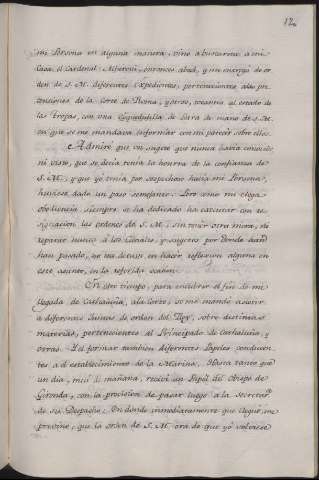 12
mi Persona en alguna manera, vino a buscarme à mi
Casa, el Cardenal Alberoni, entonces abad, y me entregó de or
den de S. M. diferentes Expedientes, pertenecientes alas pre
tensiones de la Corte de Roma, y otros, tocantes al estado de
las tropas, con una Esquelilla de letra de mano de S. M.
en que se me mandava informar con mi parecer sobre ellos.
Admiré que un sugeto que nunca havia conocido
ni visto, que se decia tenia la honrra de la confianza de
S. M.; y que yo tenia por sospechoso hacia mi Persona,
huviese dado un paso semejante. Pero como mi ciega
obediencia siempre se ha dedicado ha executar con re
signacion las ordenes de S. M.; sin tener otra mira, ni
reparar nunca à los Canales, y sugetos por donde han
pasado, no me detuve en hacer reflexion alguna en
este asiento, en la referida ocasion.
En este tiempo, para encubrir el fin de mi
llegada de Cathaluña, ala Corte, se me mandò asistir
à diferentes Juntas de orden del Rey, sobre distintas
materias, pertenecientes al Principado de Cathaluña, y
otras. Y el formar tambien diferentes Papeles conducen
tes a el establecimiento de la Marina. Hasta tanto que
un dia, mui de mañana, recivi un Papel del Obispo de
Gironda, con la precision de pasar luego à la Secretaría
de su Despacho. En donde inmediatamente que llegué me
previno, que la orden de S. M. era de que yo volviese